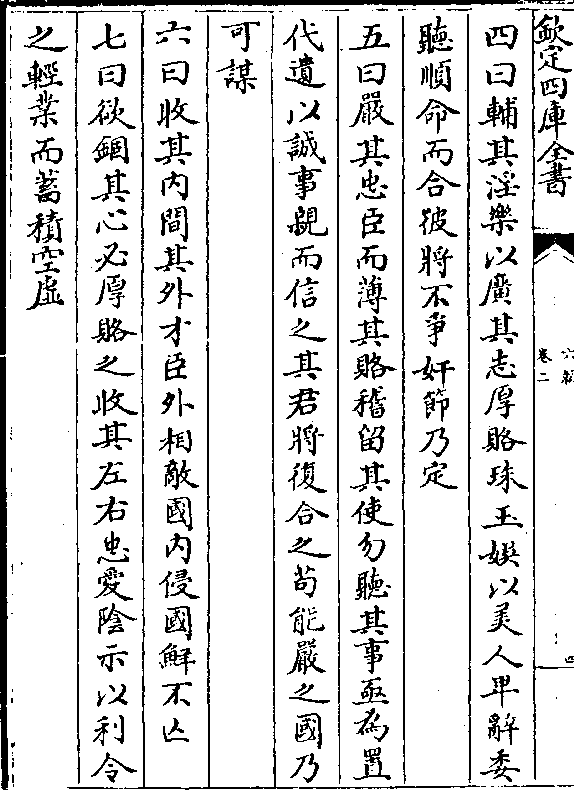 欽定四庫全書
六韜
卷二
四
四曰輔其淫樂以廣其志厚賂珠玉娱以美人卑辭委
聽順命而合彼將不爭奸節乃定
五曰嚴其忠臣而薄其賂稽留其使勿聽其事亟為置
代遺以誠事親而信之其君將復合之茍能嚴之國乃
可謀
六曰收其内間其外才臣外相敵國内侵國鮮不亾
七曰欲錮其心必厚賂之收其左右忠愛陰示以利令
之輕業而蓄積空虚